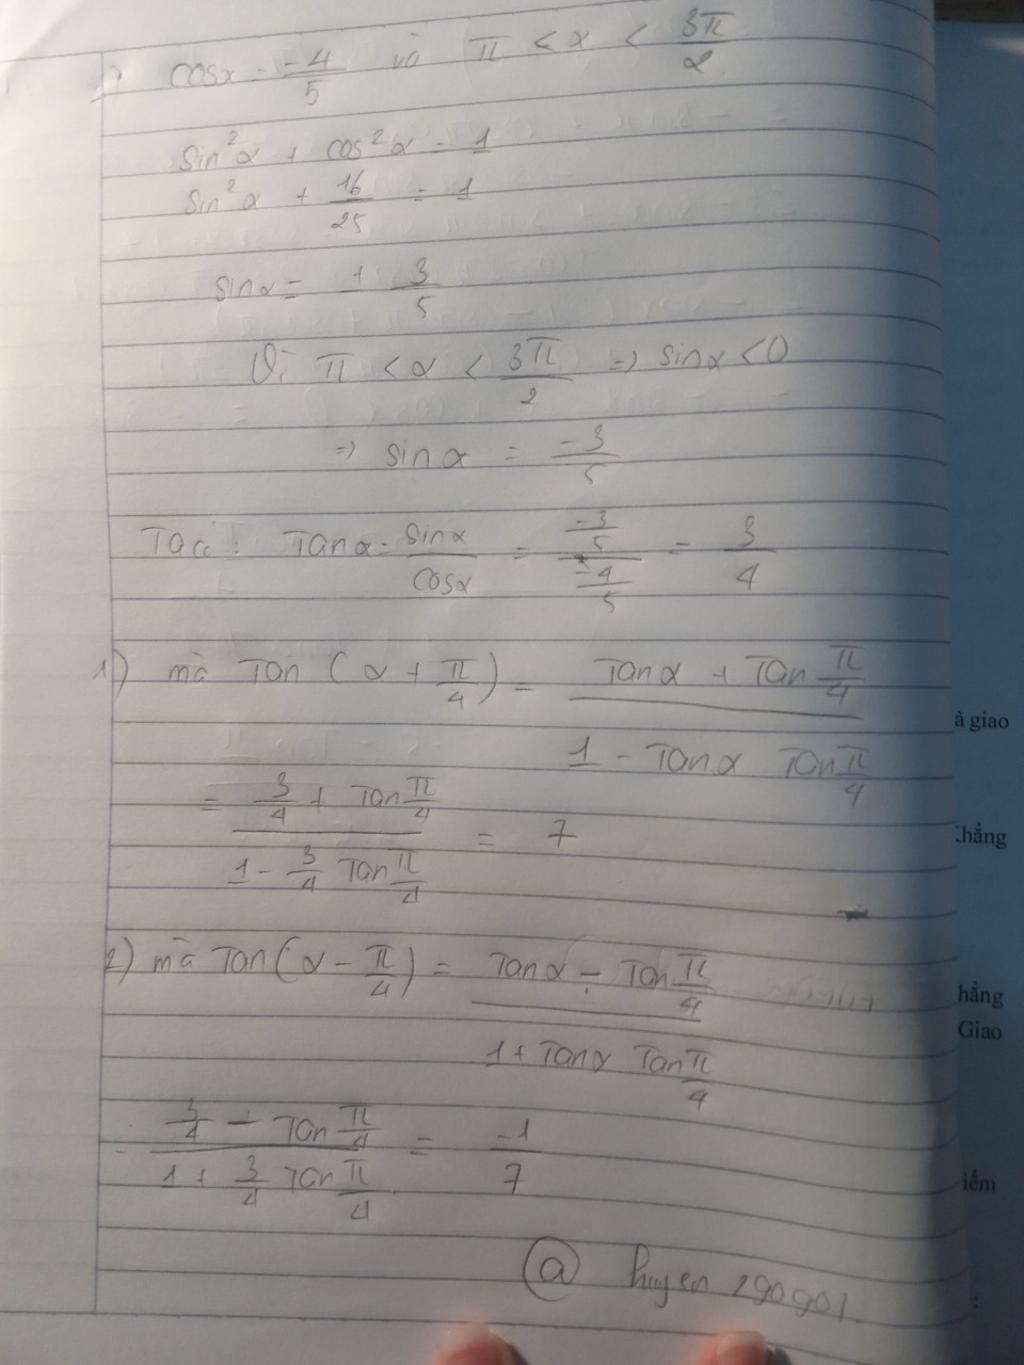 cosx = -4/5 và π < α < 3π/2
sin²α + cos²α = 1
sin²α + 16/25 = 1
sinα = ± 3/5
Vì π < α < 3π/2 => sinα < 0
=> sin α = -3/5
Ta có : Tanα = sinα/cosα = (-3/5)/(-4/5) = 3/4
1) mà Tan (α + π/4) = (Tanα + Tan π/4)/(1 - Tanα Tan π/4)
= (3/4 + Tan π/4)/(1 - 3/4 Tan π/4) = 7
2) mà Tan(α - π/4) = (Tanα - Tan π/4)/(1 + Tanα Tan π/4)
= (3/4 - Tan π/4)/(1 + 3/4 Tan π/4) = -1/7
@ huyen 290901
à giao
hẳng
hẳng
Giao
iếm